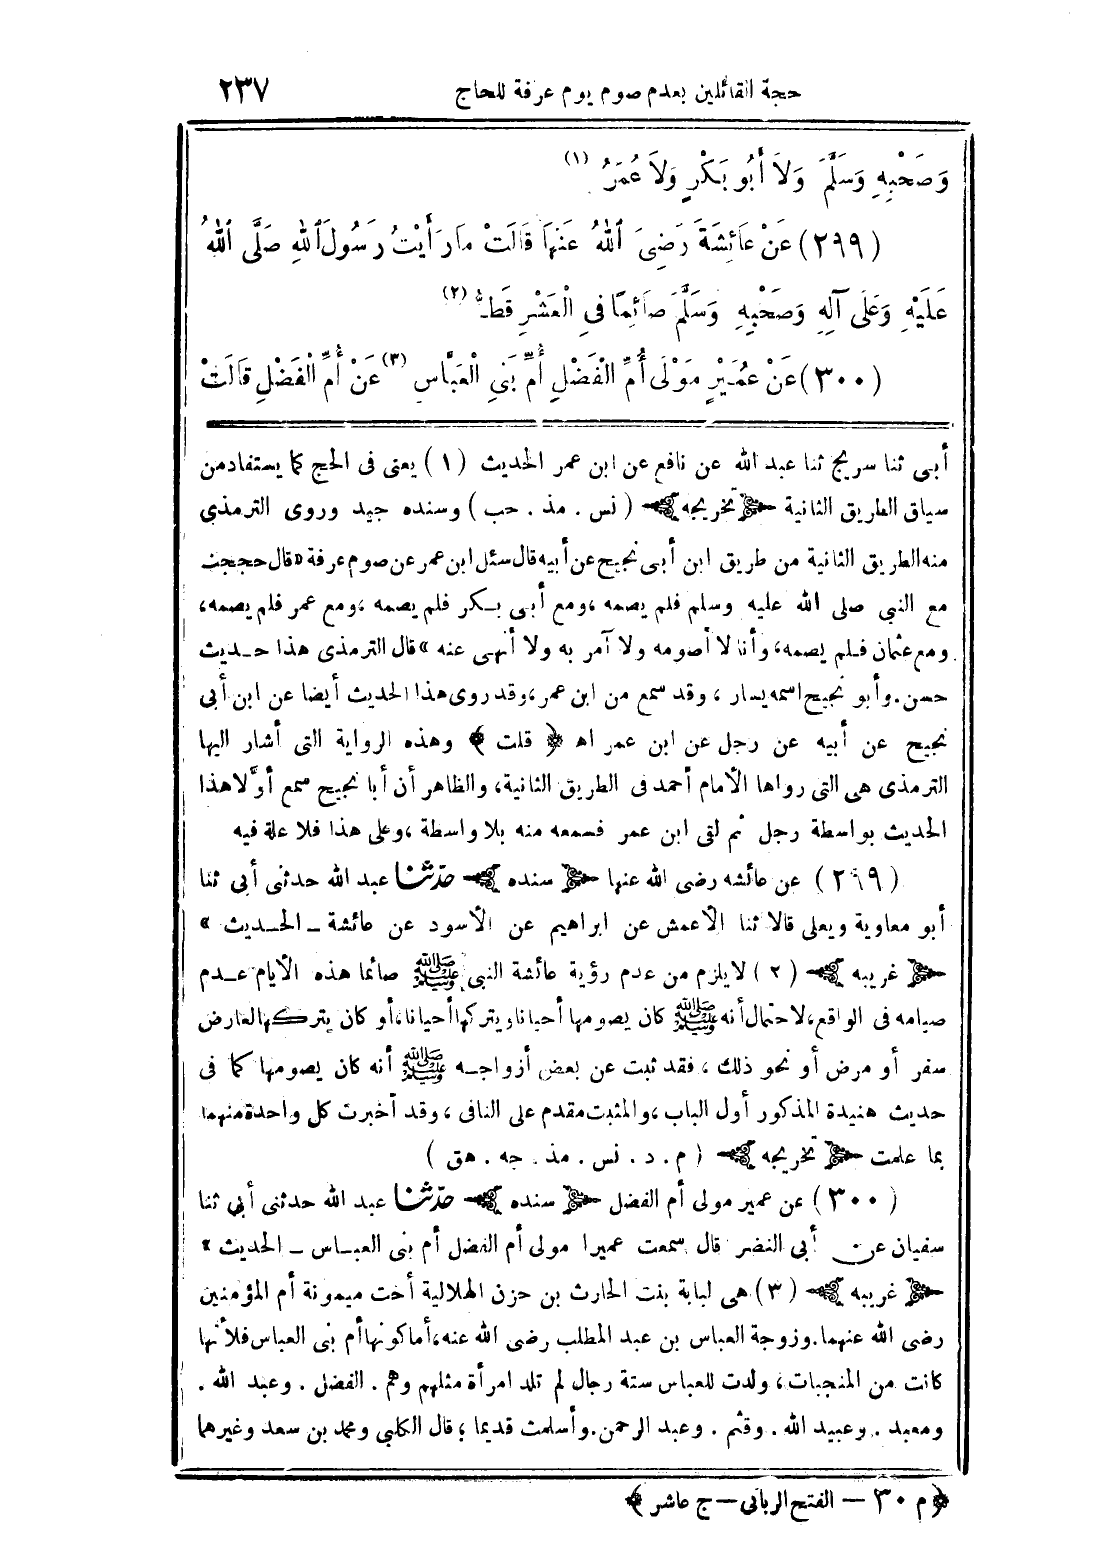 حجة القائلين بعدم صوم يوم عرفة للحاج ٢٣٧
وَصَحْبِهِ وَسَلَّمَ وَلاَ أَبُو بَكْرٍ وَلاَ عُمَرُ (١)
(٢٩٩) عَنْ عَائِشَةَ رَضِيَ اللهُ عَنْهَا قَالَتْ مَا رَأَيْتُ رَسُولَ اللهِ صَلَّى اللهُ
عَلَيْهِ وَعَلَى آلِهِ وَصَحْبِهِ وَسَلَّمَ صَائِمًا فِي الْعَشْرِ قَطُّ (٢)
(٣٠٠) عَنْ عُمَيْرٍ مَوْلَى أُمِّ الْفَضْلِ أُمِّ بَنِي الْعَبَّاسِ (٣) عَنْ أُمِّ الْفَضْلِ قَالَتْ
أبى ثنا سريج ثنا عبد الله عن نافع عن ابن عمر الحديث (١) يعنى فى الحج كما يستفاد من
سياق الطريق الثانية ﴿تخريجه﴾ (نس . مذ . حب) وسنده جيد وروى الترمذى
منه الطريق الثانية من طريق ابن أبى نجيح عن أبيه قال سئل ابن عمر عن صوم عرفة «قال حججت
مع النبى صلى الله عليه وسلم فلم يصمه ، ومع أبى بكر فلم يصمه ، ومع عمر فلم يصمه،
ومع عثمان فلم يصمه، وأنا لا أصومه ولا آمر به ولا أنهى عنه» قال الترمذى هذا حديث
حسن . وأبو نجيح اسمه يسار ، وقد سمع من ابن عمر ، وقد روى هذا الحديث أيضا عن ابن أبى
نجيح عن أبيه عن رجل عن ابن عمر اه ﴿قلت﴾ وهذه الرواية التى أشار اليها
الترمذى هى التى رواها الأمام أحمد فى الطريق الثانية، والظاهر أن أبا نجيح سمع أوَّلا هذا
الحديث بواسطة رجل ثم لقى ابن عمر فسمعه منه بلا واسطة ، وعلى هذا فلا علة فيه
(٢٩٩) عن عائشه رضى الله عنها ﴿سنده﴾ حدّثنا عبد الله حدثنى أبى ثنا
أبو معاوية ويعلى قالا ثنا الأعمش عن ابراهيم عن الأسود عن عائشة ـ الحديث »
﴿غريبه﴾ (٢) لا يلزم من عدم رؤية عائشة النبى ﷺ صائما هذه الأيام عدم
صيامه فى الواقع، لاحتمال أنه ﷺ كان يصومها أحيانا ويتركها أحيانا، أو كان يتركها لعارض
سفر أو مرض أو نحو ذلك ، فقد ثبت عن بعض أزواجه ﷺ أنه كان يصومها كما فى
حديث هنيدة المذكور أول الباب ، والمثبت مقدم على النافى ، وقد أخبرت كل واحدة منهما
بما علمت ﴿تخريجه﴾ (م . د . نس . مذ . جه . هق)
(٣٠٠) عن عمير مولى أم الفضل ﴿سنده﴾ حدّثنا عبد الله حدثنى أبى ثنا
سفيان عن أبى النضر قال سمعت عميرا مولى أم الفضل أم بنى العباس ـ الحديث »
﴿غريبه﴾ (٣) هى لبابة بنت الحارث بن حزن الهلالية أخت ميمونة أم المؤمنين
رضى الله عنهما . وزوجة العباس بن عبد المطلب رضى الله عنه، أما كونها أم بنى العباس فلأنها
كانت من المنجبات ، ولدت للعباس ستة رجال لم تلد امرأة مثلهم وهم . الفضل . وعبد الله .
ومعبد . وعبيد الله . وقثم . وعبد الرحمن . وأسلمت قديما ؛ قال الكلبى ومحمد بن سعد وغيرهما
﴿م ٣٠ — الفتح الربانى — ج عاشر﴾